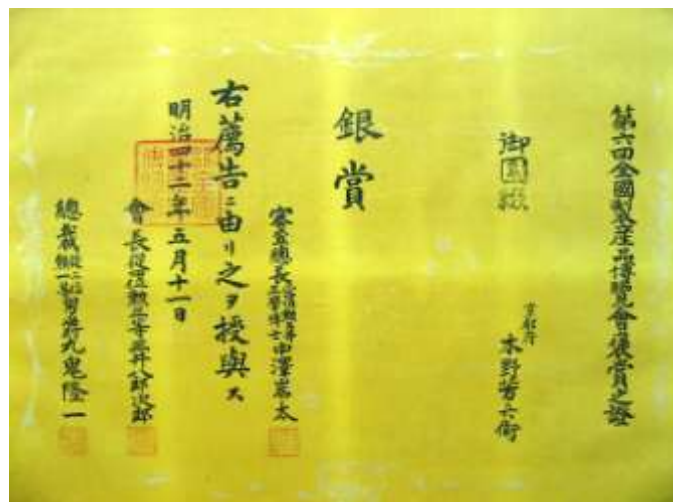 第六回全國製産品博覽會褒賞之證
御園
京都府
木野
銀賞
審査總長
中澤岩太
右薦告ニ由リ之ヲ授與ス
明治四十二年五月十一日
會長從四位勲三等三井八郎次郎
總裁
男爵九鬼隆一